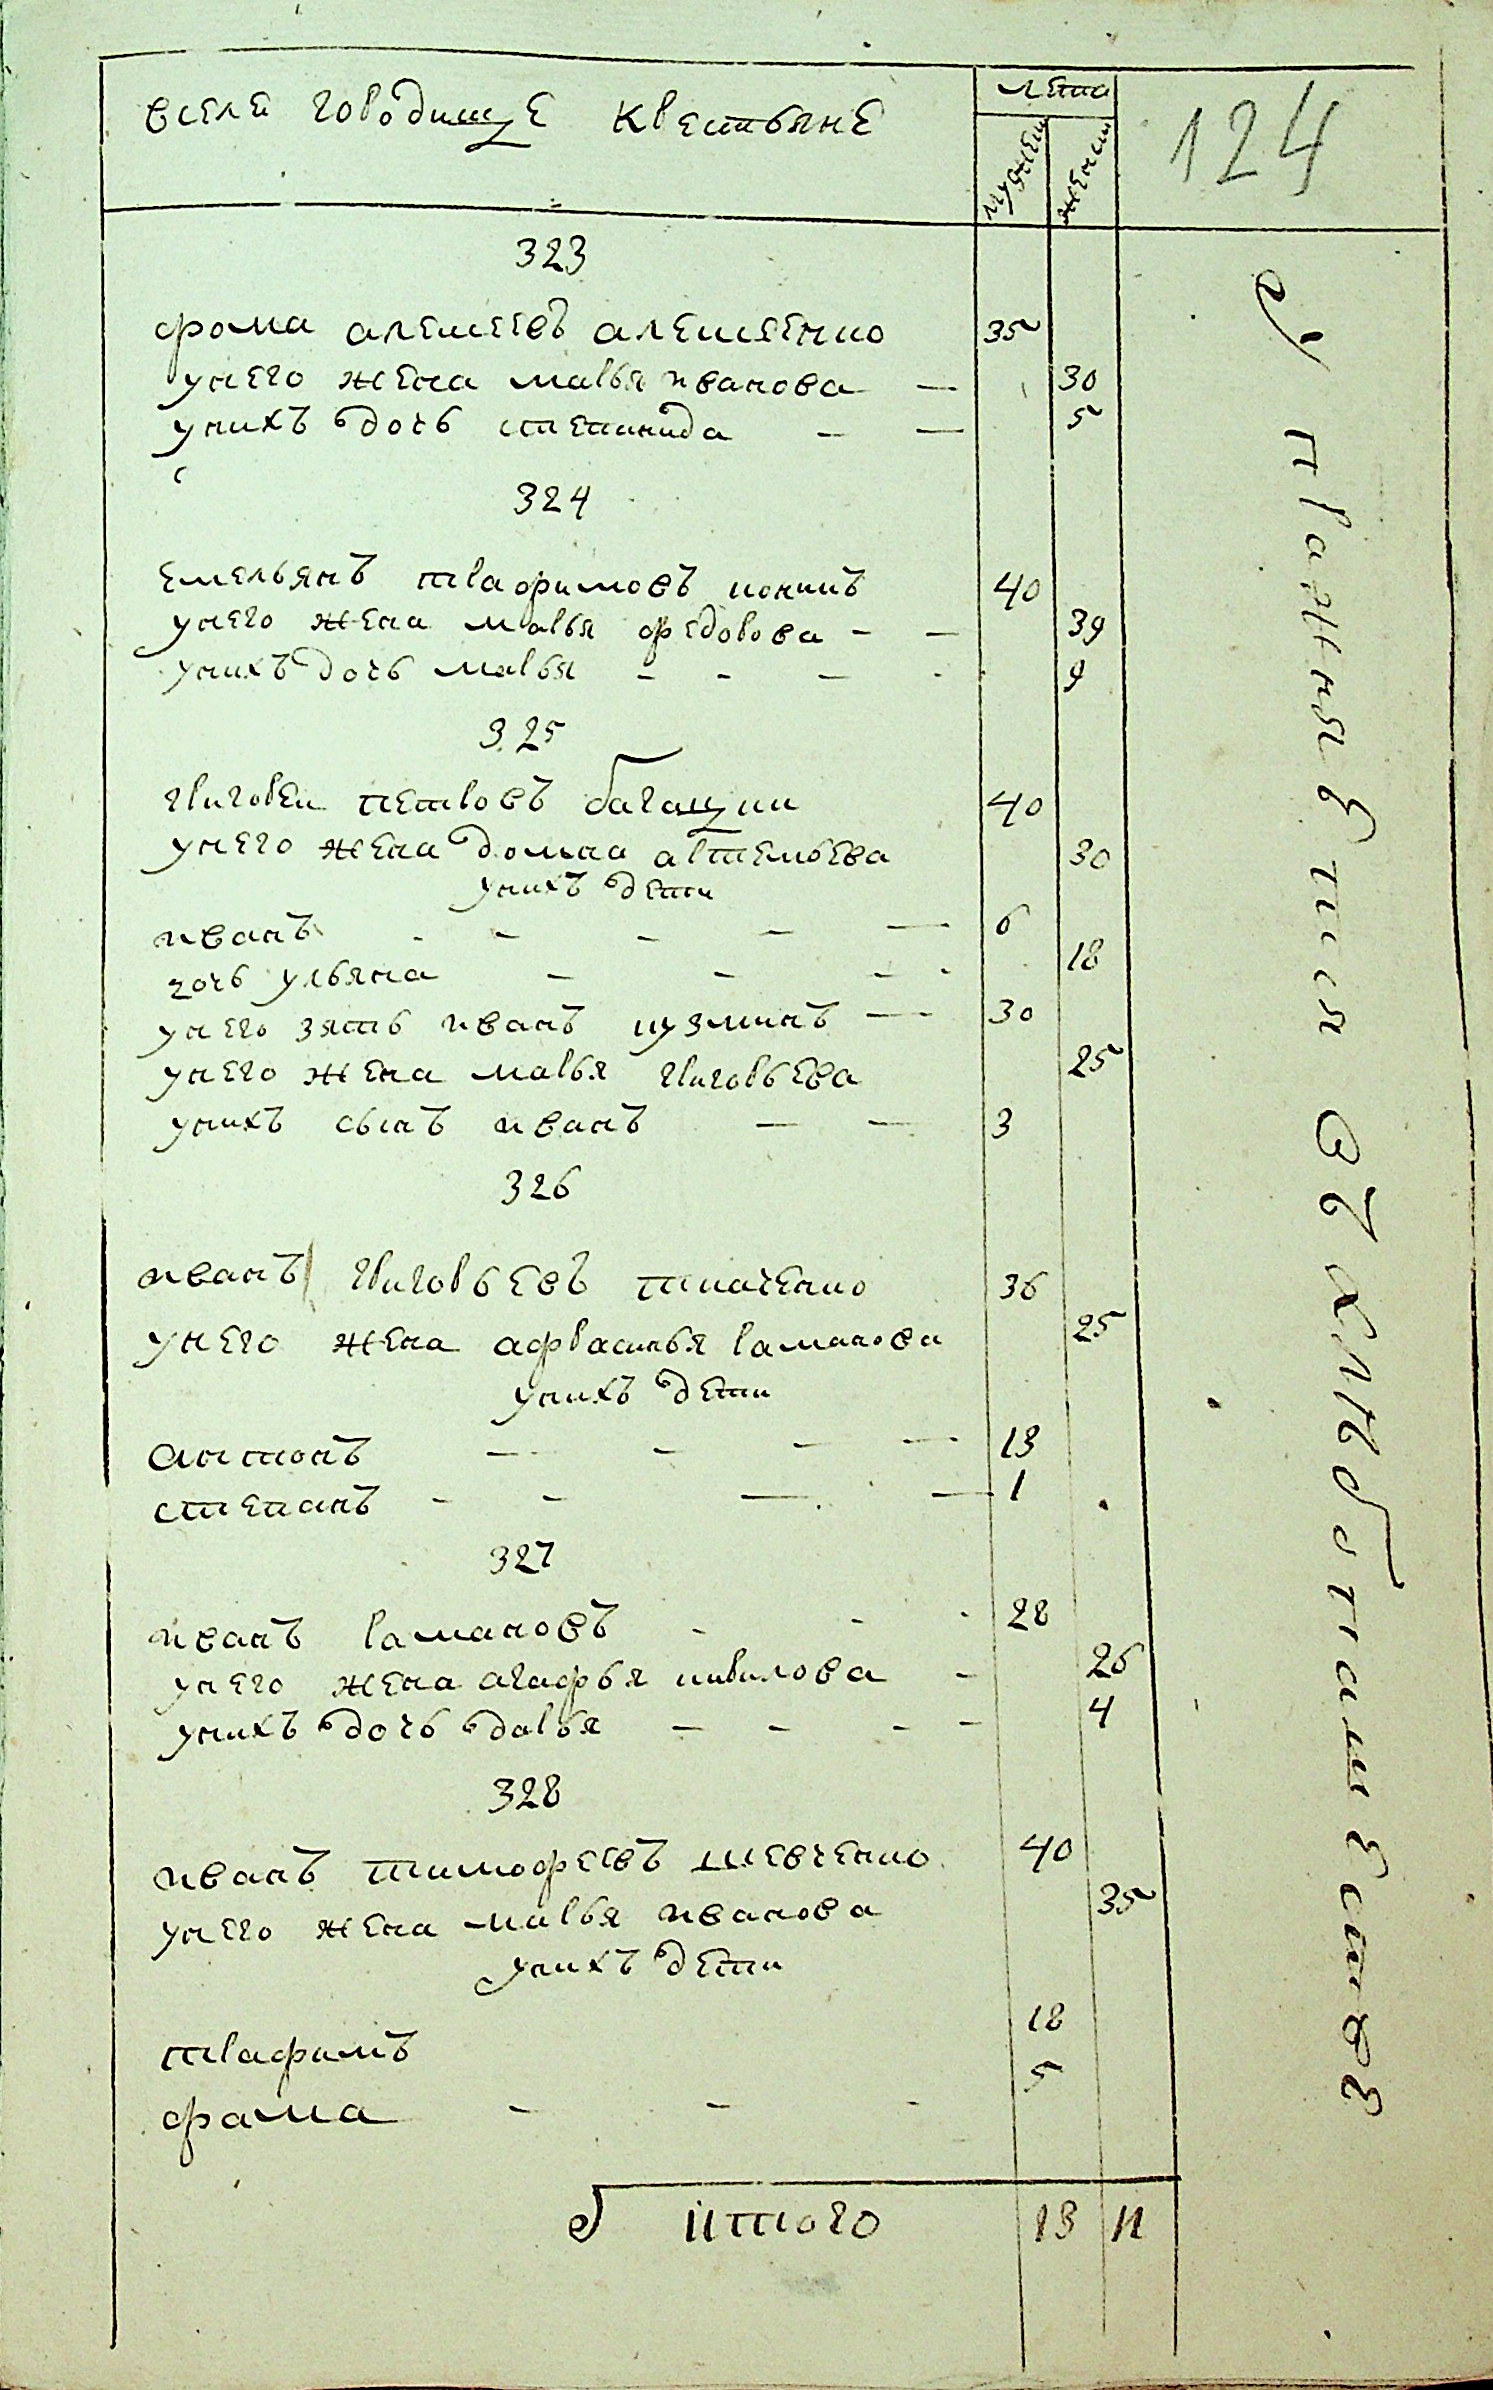 вселе городище крестьяне
лета
мужеск
женск
124
323
фома алексеевъ алексеенко 35
унего жена марья иванова — 30
унихъ дочь степанида — — 5
324
емельянъ трафимовъ коникъ 40
унего жена марья федорова — — 39
унихъ дочь марья — — — 9
325
григореи петровъ багацкии 40
унего жена домна артемьева 30
унихъ дети
иванъ — — — — 6
дочь ульяна — — — 18
унего зять иванъ кузминъ — 30
унего жена марья григорьева 25
унихъ сынъ иванъ — — 3
326
иванъ григорьевъ ткаченко 36
унего жена афрасинья раманова 25
унихъ дети
антонъ — — — — 13
степанъ — — — — 1
327
иванъ рамановъ — — 28
унего жена агафья кирилова — 26
унихъ дочь дарья — — — — 4
328
иванъ тимофеевъ шевченко 40
унего жена марья иванова 35
унихъ дети
трафимъ 18
фама — — — 5
итого 13 11